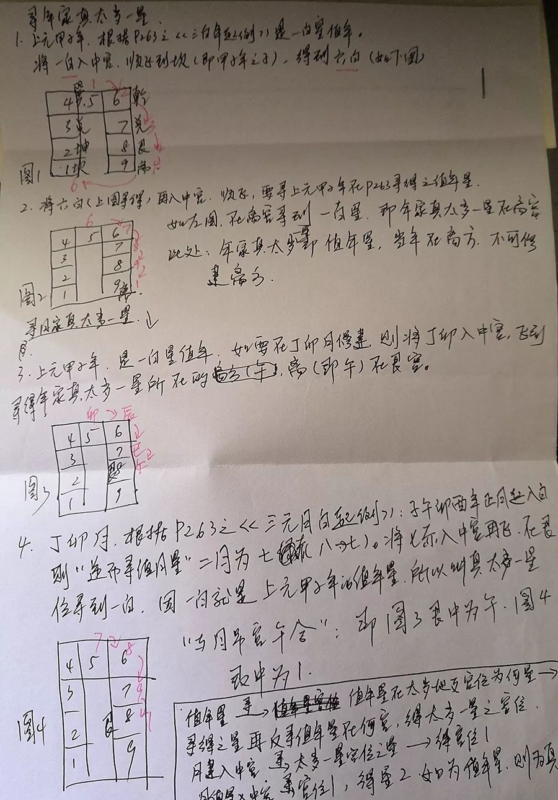 寻年家真太乡一星
1. 上元甲子年, 根据P263之《三白年起例》是一白星值年。
将一白入中宫, 顺飞到坎(即甲子年之子), 得到六白(如下图)
1
4 5 6 乾
3 兑 7 兑
2 坤 8 艮
1 坎 9 离
图1
6
2. 将六白(上图寻得)再入中宫, 顺飞, 要寻上元甲子年在P263寻得之值年星.
如左图, 在离宫寻到一白星, 即年家真太乡一星在离宫
此处: 年家真太乡即值年星, 当年在离方, 不可修
建离方.
6 7
4 5 6
3 7
2 8
1 9 离
图2
寻月家真太乡一星 ↓
3. 上元甲子年, 是一白星值年, 如要在丁卯月修建, 则将丁卯入中宫, 飞到
寻得年家真太乡一星所在的离(午), 离(即午)在艮宫。
卯 辰
4 5 6
3 7
2 8
1 9
图3
4. 丁卯月, 根据P263之《三元月白起例》: 子午卯酉年正月起八白
则“逆而寻值月星”二月为七(八→七)。将七赤入中宫再飞, 在艮
位寻到一白, 因一白就是上元甲子年的值年星, 所以叫真太乡一星
“与月吊宫午合”: 即图3艮中为午, 图4
艮中为1.
7 8
4 5 6
3 7
2 8
1 9
图4
值年星 寻→ 值年星在太岁地支宫位为何星→
寻得之星再反寻值年星在何宫, 得太乡一星之宫位.
月建入中宫, 寻太乡一星宫位之星 → 得宫位1
入中宫, 寻宫位1, 得星2. 如为值年星, 则为真